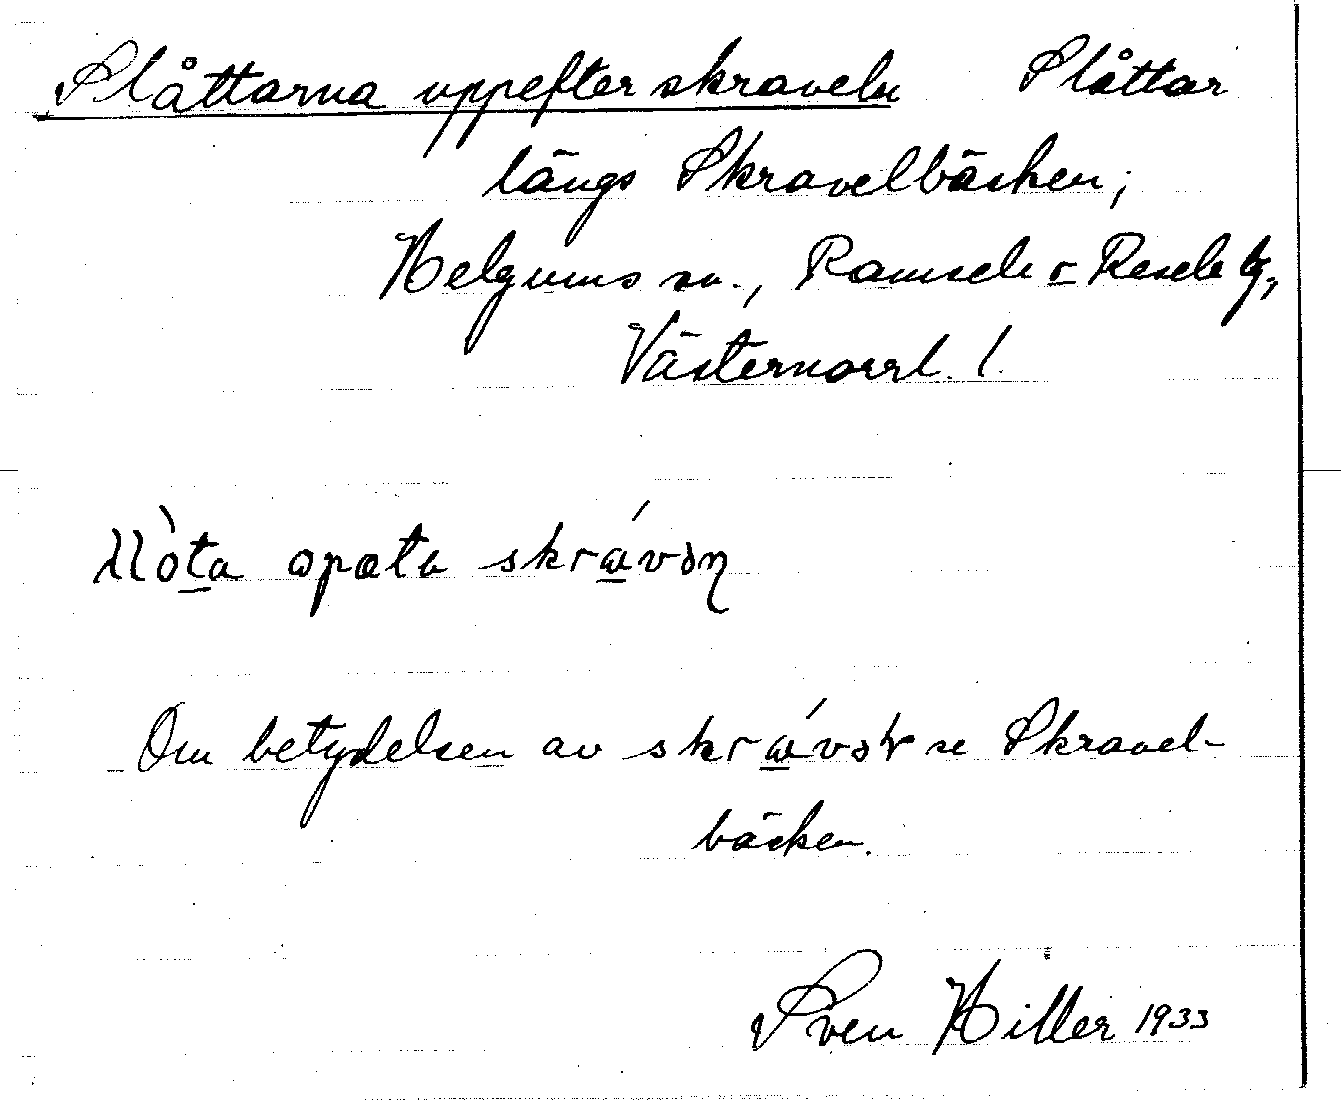 Slåttarna uppefter skraveln Slåttar
längs Skravelbäcken;
Helgums sn., Ramsele o Resele tg,
Västernorrl. l.
opata
Om betydelsen av se Skravel-
bäcken.
Sven Hiller 1933